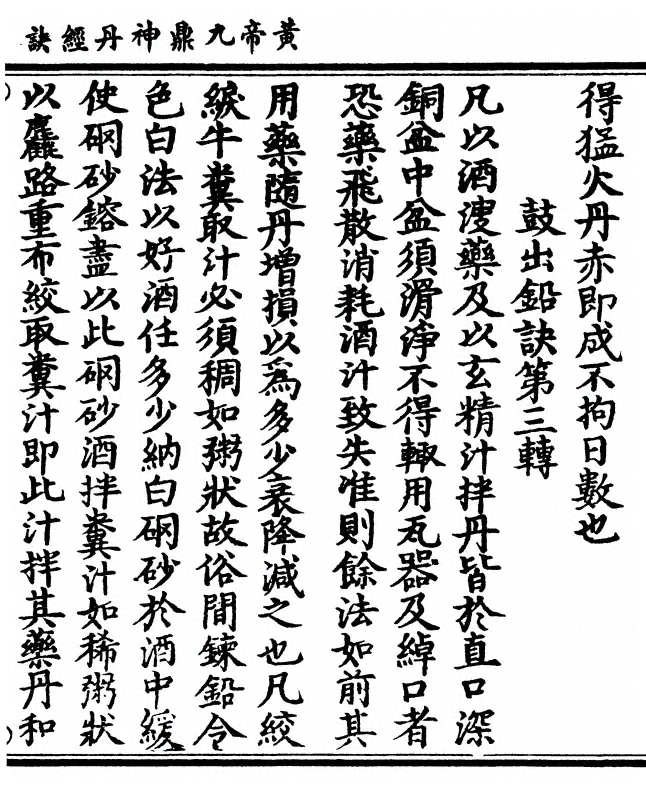 黃帝九鼎神丹經訣
得猛火丹赤即成不拘日數也
鼓出鉛訣第三轉
凡以酒溲藥及以玄精汁拌丹皆於直口深
銅盆中盆須滑淨不得輙用瓦器及綽口者
恐藥飛散消耗酒汁致失准則餘法如前其
用藥隨丹增損以為多少衰降減之也凡絞
綟牛糞取汁必須稠如粥狀故俗間鍊鉛令
色白法以好酒任多少納白碙砂於酒中緩
使碙砂鎔盡以此碙砂酒拌糞汁如稀粥狀
以麤路重布絞取糞汁即此汁拌其藥丹和